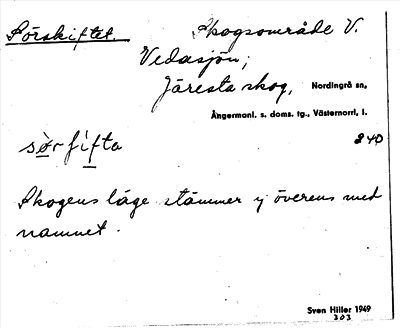 Sörskiftet. Skogsområde V.
Vedasjön;
Järesta skog, Nordingrå sn,
Ångermanl. s. doms. tg., Västernorrl. l.
240
sø̀rfífta
Skogens läge stämmer ej överens med
namnet.
Sven Hiller 1949
303